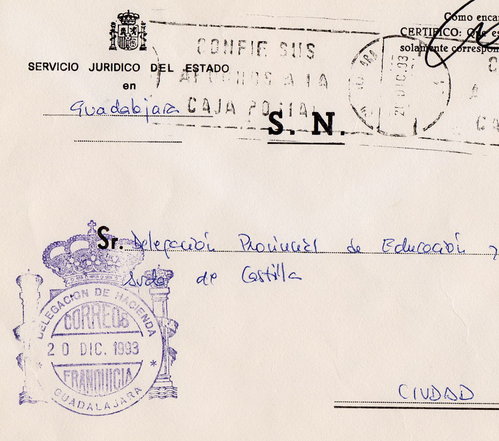 Como encar
CERTIFICO: Que es
solamente correspon
CONFIE SUS
AHORROS A LA
CAJA POSTAL
SERVICIO JURIDICO DEL ESTADO
en
Guadalajara
21 DIC. 93
S. N.
Sr. Delegación Provincial de Educación y
de Castilla
DELEGACION DE HACIENDA
CORREOS
20 DIC. 1993
FRANQUICIA
GUADALAJARA
CIUDAD